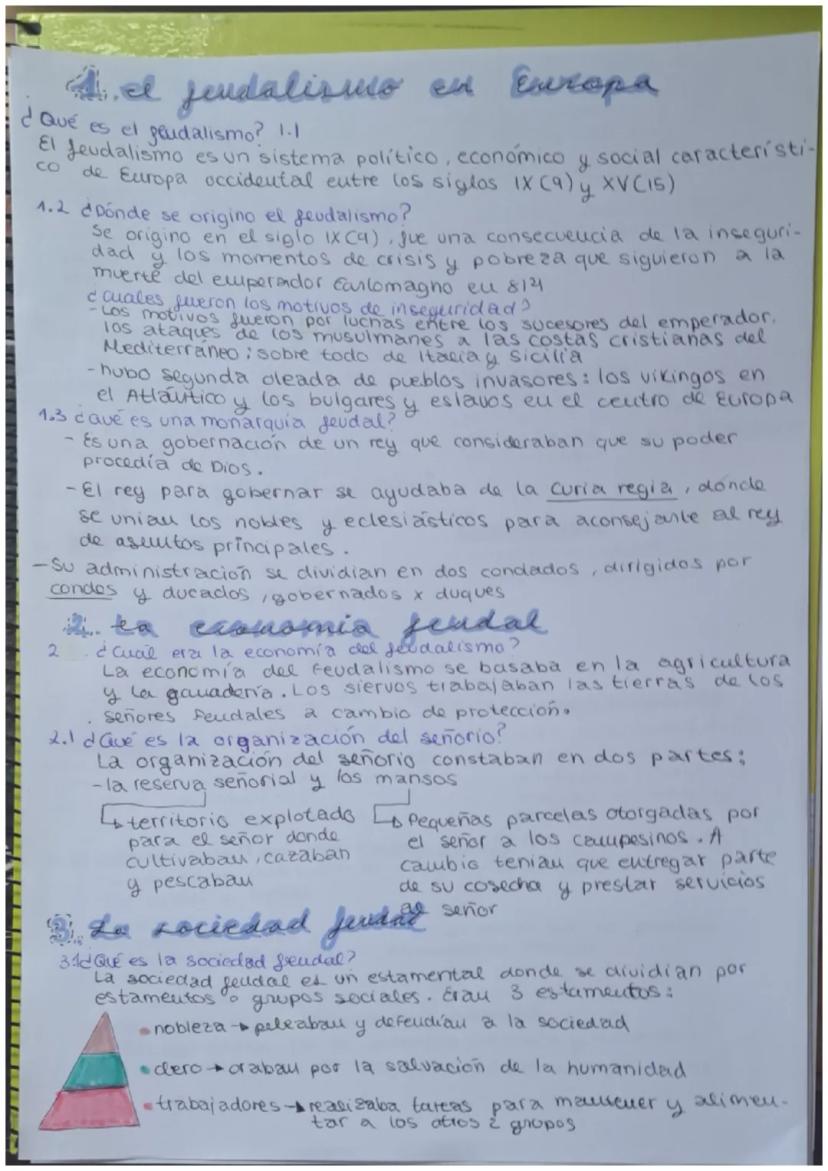 1. el feudalismo en Europa
¿Qué es el feudalismo? 1.1
El feudalismo es un sistema político, económico y social característi-
co de Europa occidental entre los siglos IX(9) y XV(15)
1.2 ¿Dónde se origino el feudalismo?
Se origino en el siglo IX(9), fue una consecuencia de la inseguri-
dad y los momentos de crisis y pobreza que siguieron a la
muerte del emperador Carlomagno en 814
¿cuales fueron los motivos de inseguridad?
-Los motivos fueron por luchas entre los sucesores del emperador,
los ataques de los musulmanes a las costas cristianas del
Mediterráneo; sobre todo de Itacia y Sicilia
-hubo segunda oleada de pueblos invasores: los vikingos en
el Atlántico y los bulgares y eslavos en el centro de Europa
1.3 ¿qué es una monarquia feudal?
- Es una gobernación de un rey que consideraban que su poder
procedía de Dios.
-El rey para gobernar se ayudaba de la curia regia, donde
se unian los nobles y eclesiásticos para aconsejarle al rey
de asuntos principales.
-Su administración se dividian en dos condados, dirigidos por
condes y ducados, gobernados x duques
2. La economia feudal
2 ¿Cuál era la economía del feudalismo?
La economía del feudalismo se basaba en la agricultura
y la ganadería. Los siervos trabajaban las tierras de los
señores feudales a cambio de protección.
2.1 ¿Qué es la organización del señorio?
La organización del señorio constaban en dos partes:
-la reserva señorial y los mansos
↳ territorio explotado
para el señor donde
cultivaban, cazaban
y pescaban
↳ Pequeñas parcelas otorgadas por
el señor a los campesinos. A
cambio tenian que entregar parte
de su cosecha y prestar servicios
al señor
3. La sociedad feudal
3.1 ¿Qué es la sociedad feudal?
La sociedad feudal es un estamental donde se dividían por
estamentos o grupos sociales. Eran 3 estamentos:
• nobleza → peleaban y defendían a la sociedad
• clero → oraban por la salvación de la humanidad
• trabajadores → realizaba tareas para mantener y alimen-
tar a los otros 2 grupos